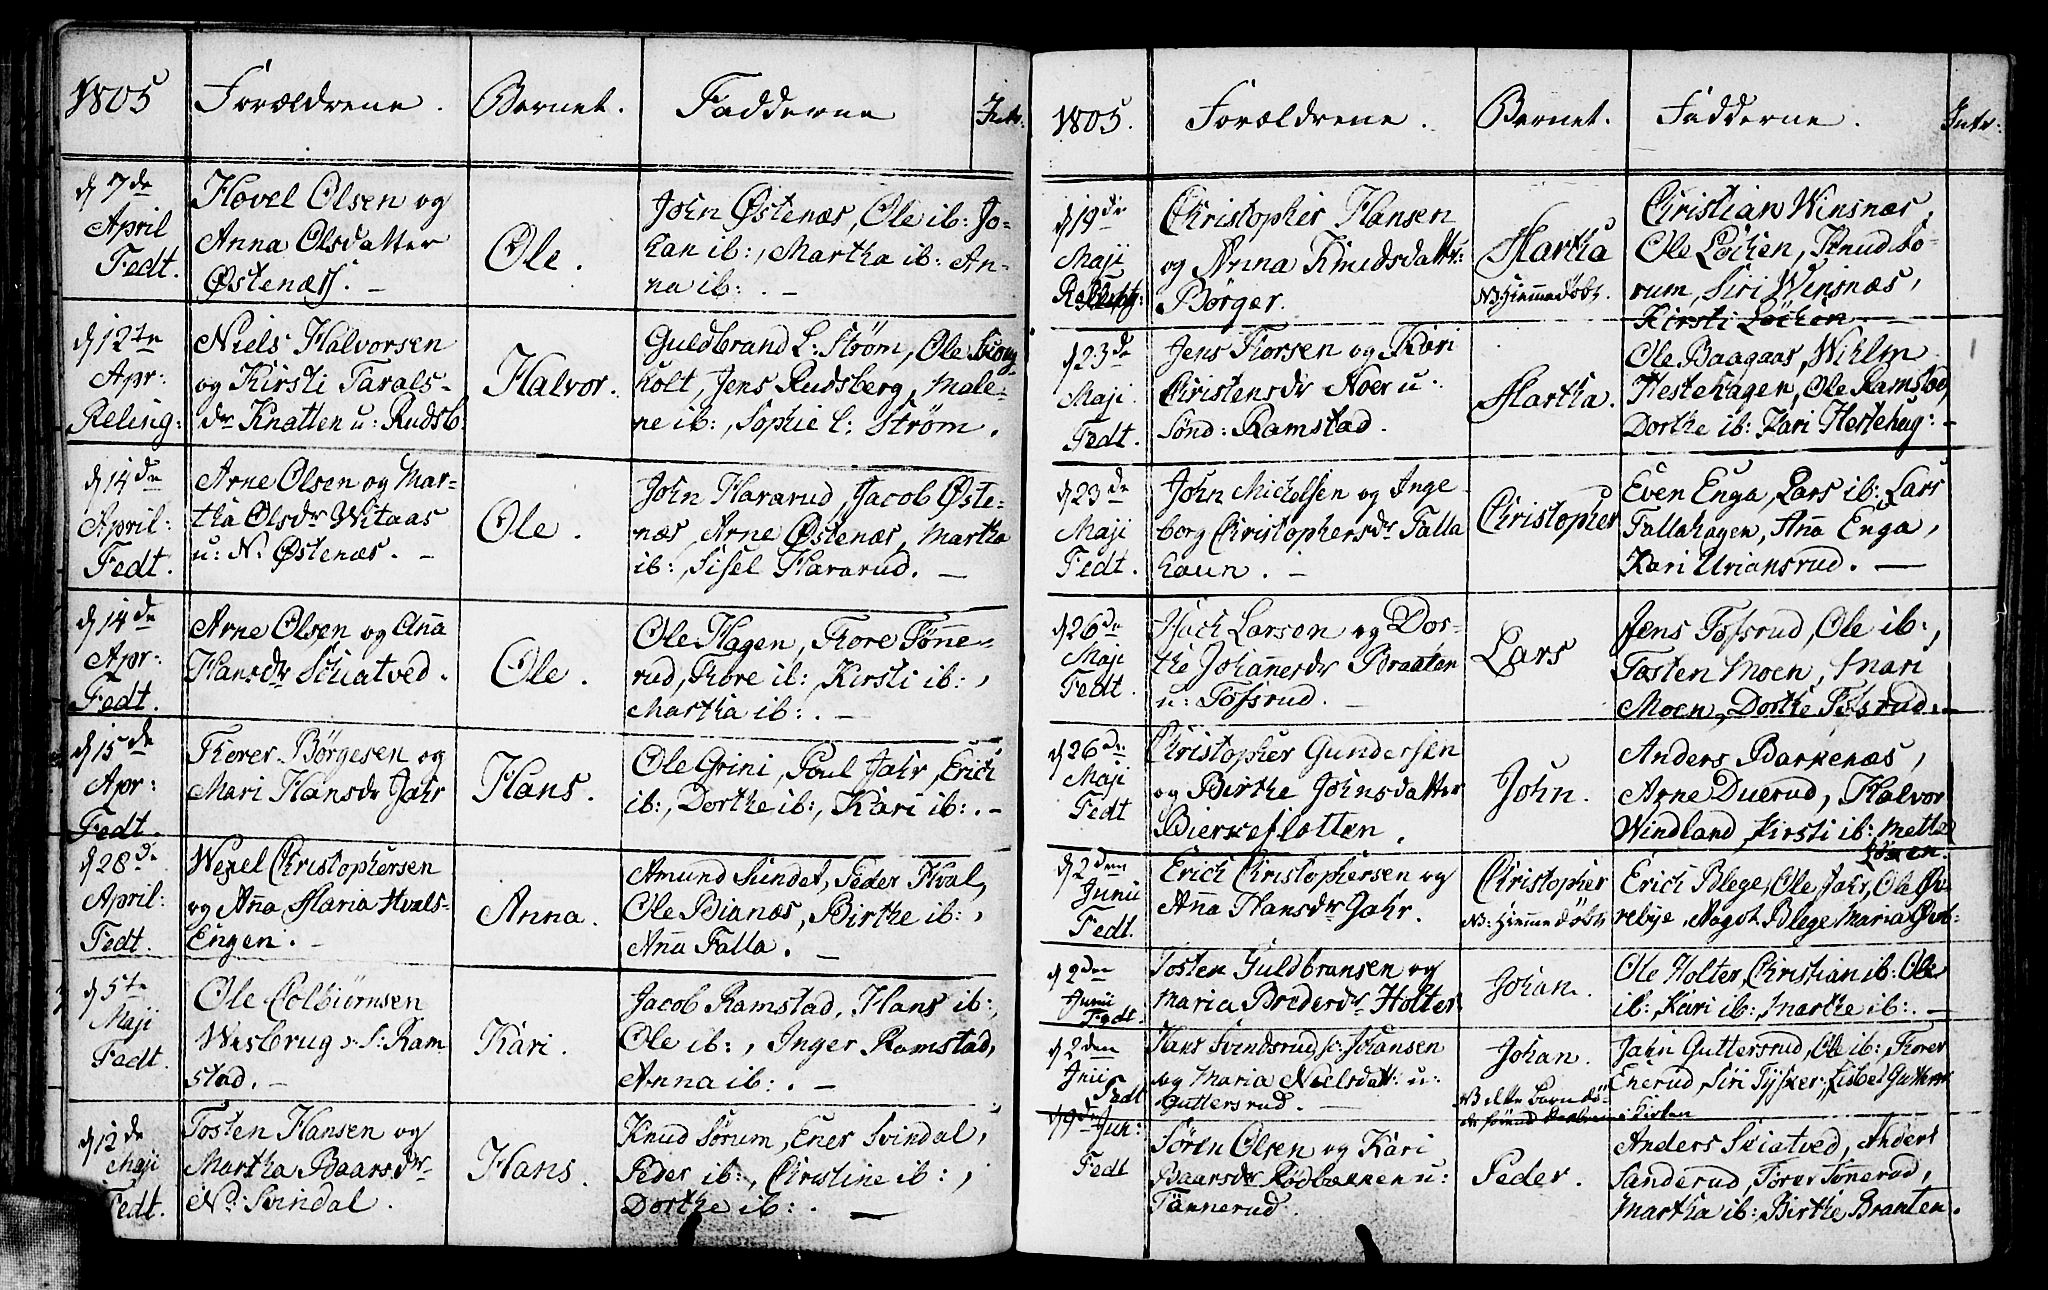 1805 Forældrene. Barnet. Fadderne Intr.
d 7de
April
Fedt.
Hovel Olsen og
Anna Olsdatter
Østenæs. -
Ole.
John Østenæs, Ole ib: Jo-
han ib:, Martha ib: An-
na ib: . -
d 12te
Apr:
Reling:
Niels Halvorsen
og Kirsti Tarals-
dr Knatten u: Rudsb.
Halvor.
Guldbrand L: Strøm, Ole
holt, Jens Rudsberg, Male-
ne ib:, Sophie L: Strøm.
d 14de
April:
Fedt.
Arne Olsen og Mar-
tha Olsdr Witaas
u: N. Østenæs. -
Ole.
John Hararud, Jacob Øste-
næs, Arne Østenæs, Martha
ib:, Sisel Hararud. -
d 14de
Apr:
Fedt.
Arne Olsen og Anna
Hansdr Schiatved.
Ole.
Ole Hagen, Thore Tønne-
rud, Thore ib:, Kirsti ib:,
Martha ib: . -
d 15de
Apr:
Fedt.
Thorer Børgesen og
Mari Hansdr Jahr
Hans.
Ole Grini, Poul Jahr, Erich
ib:, Dorthe ib:, Kari ib: . -
d 28de
April:
Fedt.
Wexel Christophersen
og Anna Maria Hvals-
Engen. -
Anna.
Amund Sundet, Peder Hval,
Ole Bianæs, Birthe ib:,
Anna Falla. -
d 5te
Maji
Fedt.
Ole Colbiørnsen
Westbrug s: S: Ram-
stad. -
Kari.
Jacob Ramstad, Hans ib:,
Ole ib:, Inger Ramstad,
Anna ib: . -
d 12de
Maji
Fedt.
Tosten Hansen og
Martha Baarsdr
Nd: Svindal.
Hans.
Knud Sørum, Ener Svindal,
Peder ib:, Christine ib:,
Dorthe ib: . -
1805. Forældrene. Barnet. Fadderne. Intr:
d 19de
Maji
Reling:
Christopher Hansen
og Anna Knudsdattr:
Børger.
Martha
NB: Hiemmedøbt.
Christian Winsnæs,
Ole Løchen, Knud So-
rum, Siri Winsnæs,
Kirsti Løchen -
d 23de
Maji.
Fedt.
Jens Thorsen og Kari
Christensdr Noer u:
Sønd: Ramstad.
Martha.
Ole Baagaas, Wihlm
Hestehagen, Ole Ramstad,
Dorthe ib: Kari Hestehag: -
d 23de
Maji
Fedt.
John Michelsen og Inge-
borg Christophersdr Falla
haun. -
Christopher
Even Enga, Lars ib: Lars
Fallahagen, Anna Enga,
Kari Uriansrud. -
d 26de
Maji
Fedt.
Isach Larsen og Dor-
the Johannesdr Braaten
u: Fossrud. -
Lars
Jens Fossrud, Ole ib:,
Tosten Moen, Mari
Moen, Dorthe Fossrud. -
d 26de
Maji
Fedt
Christopher Gundersen
og Birthe Johnsdatter
Bierkeflotten.
John.
Anders Barkenæs,
Arne Duerud, Halvor
Windland, Kirsti ib: Mette
d 2den
Junii
Fedt.
Erich Christophersen og
Anna Hansdr Jahr.
Christopher
NB: Hiemmedøbt
Erich Blege, Ole Jahr, Ole Øv-
rebye, Aagot Blege, Maria Øvb:
d 2den
Junii
Fedt.
Tosten Guldbransen og
Maria Bredersdr Holter
Johan.
Ole Holter, Christian ib: Ole
ib:, Kari ib:, Marthe ib: . -
d 2den
Junii
Fedt
Hans Svindsrud, s: Johansen
og Maria Nielsdatt: u:
Guttersrud. -
Johan.
Jahn Guttersrud, Ole ib: Thorer
Enerud, Siri Tysker, Lisbet Guttersr
d 9de Jun:
Fedt
Søren Olsen og Kari
Baarsdr Rødbakken u:
Tønnerud.
Peder.
Anders Skiatved, Anders
Sanderud, Torer Tønnerud,
Martha ib:, Birthe Braaten.